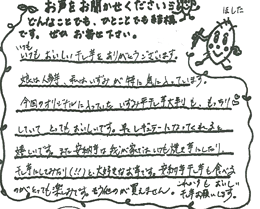 お声をお聞かせください
どんなことでも、ひとことでも結構
です。ぜひお寄せ下さい。
ほした
いつも
いつもおいしい干し芋をありがとうございます。
娘は人参芋、私はいずみが特に気に入っています。
今回のオリジナルに入っていたいずみ芋干し芋大判も、もっちり
していてとてもおいしいです。
嬉しいです。また安納芋は我が家ではいつも焼き芋にしたり
干し芋にしてみたり(!!)と大好きなお芋です。安納芋干し芋も食べる
のがとっても楽しみです。
これからもおいしい
干し芋お願いします。